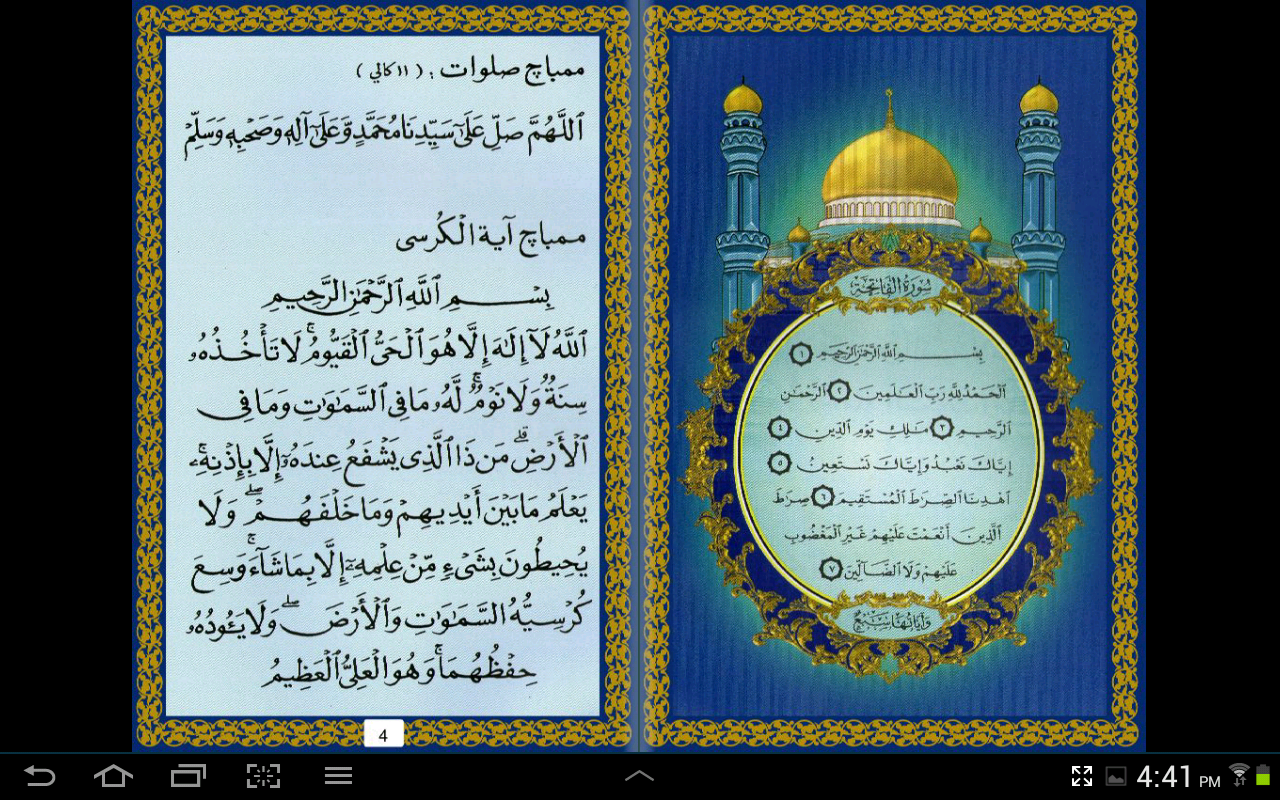 ممباچ صلوات : ( ١١ كالي )
ٱللَّهُمَّ صَلِّ عَلَىٰ سَيِّدِنَا مُحَمَّدٍ وَّعَلَىٰٓ آلِهِۦ وَصَحْبِهِۦ وَسَلِّمْ
ممباچ آية الْكُرسى
بِسْــــمِ ٱللَّهِ ٱلرَّحْمَٰنِ ٱلرَّحِيمِ
ٱللَّهُ لَآ إِلَٰهَ إِلَّا هُوَ ٱلْحَىُّ ٱلْقَيُّومُ ۚ لَا تَأْخُذُهُۥ
سِنَةٌ وَلَا نَوْمٌ ۚ لَّهُۥ مَا فِى ٱلسَّمَٰوَٰتِ وَمَا فِى
ٱلْأَرْضِ ۗ مَن ذَا ٱلَّذِى يَشْفَعُ عِندَهُۥٓ إِلَّا بِإِذْنِهِۦ ۚ
يَعْلَمُ مَا بَيْنَ أَيْدِيهِمْ وَمَا خَلْفَهُمْ ۖ وَلَا
يُحِيطُونَ بِشَىْءٍ مِّنْ عِلْمِهِۦٓ إِلَّا بِمَا شَآءَ ۚ وَسِعَ
كُرْسِيُّهُ ٱلسَّمَٰوَٰتِ وَٱلْأَرْضَ ۖ وَلَا يَـُٔودُهُۥ
حِفْظُهُمَا ۚ وَهُوَ ٱلْعَلِىُّ ٱلْعَظِيمُ
4
سُورَةُ الْفَاتِحَةِ
بِسْــــمِ ٱللَّهِ ٱلرَّحْمَٰنِ ٱلرَّحِيمِ ١
ٱلْحَمْدُ لِلَّهِ رَبِّ ٱلْعَٰلَمِينَ ٢ ٱلرَّحْمَٰنِ
ٱلرَّحِيمِ ٣ مَٰلِكِ يَوْمِ ٱلدِّينِ ٤
إِيَّاكَ نَعْبُدُ وَإِيَّاكَ نَسْتَعِينُ ٥
ٱهْدِنَا ٱلصِّرَٰطَ ٱلْمُسْتَقِيمَ ٦ صِرَٰطَ
ٱلَّذِينَ أَنْعَمْتَ عَلَيْهِمْ غَيْرِ ٱلْمَغْضُوبِ
عَلَيْهِمْ وَلَا ٱلضَّآلِّينَ ٧
وَآيَاتُهَا سَبْعٌ
4:41 PM